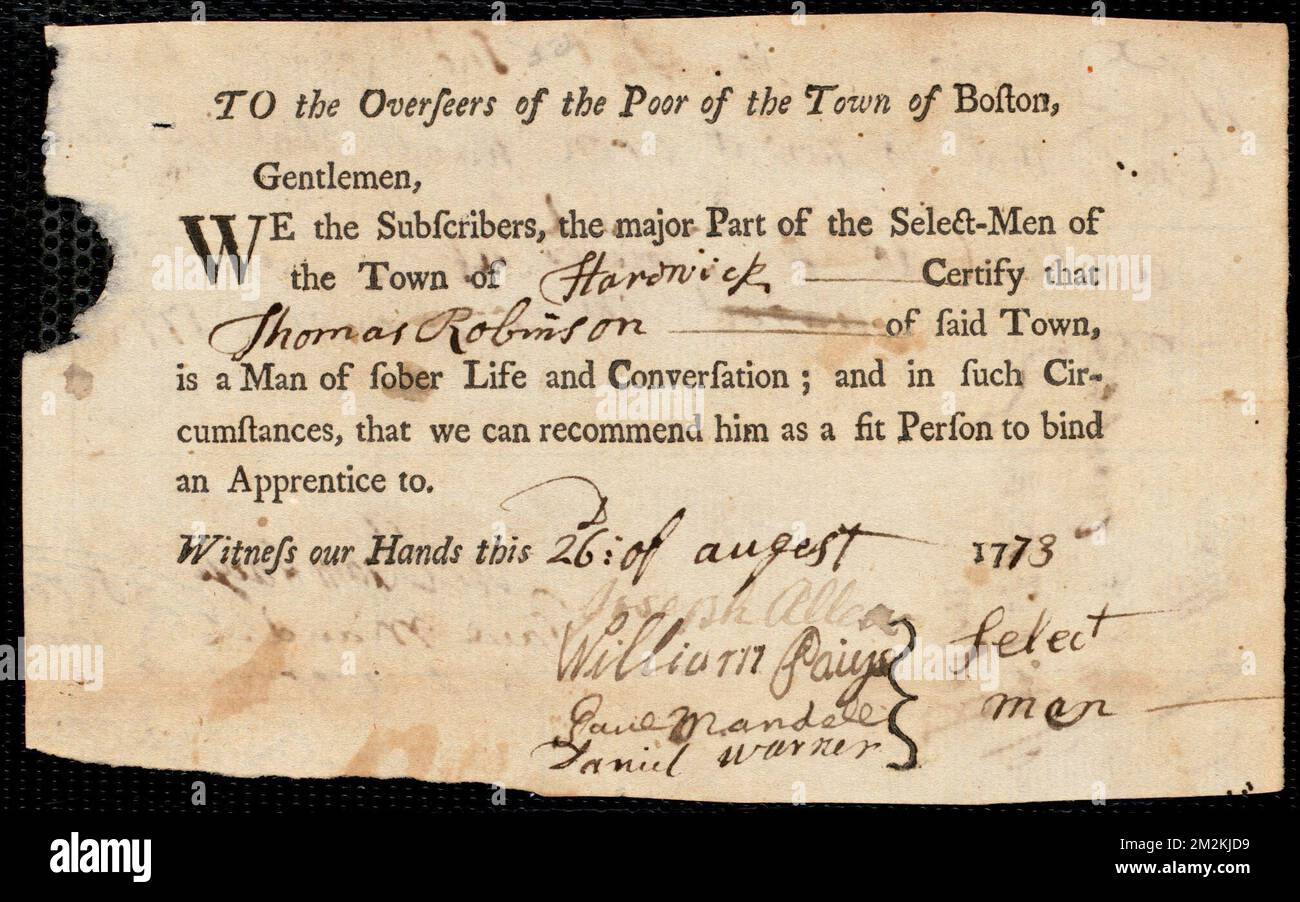 TO the Overſeers of the Poor of the Town of Boſton,
Gentlemen,
WE the Subſcribers, the major Part of the Select-Men of
the Town of Hardwick Certify that
Thomas Robinson of ſaid Town,
is a Man of ſober Life and Converſation; and in ſuch Cir-
cumſtances, that we can recommend him as a fit Perſon to bind
an Apprentice to.
Witneſs our Hands this 26: of augest 1773
Joseph Allen
William Paige Select
Paul Mandell man
Daniel Warner
alamy
Image ID: 2M2KJD9
www.alamy.com